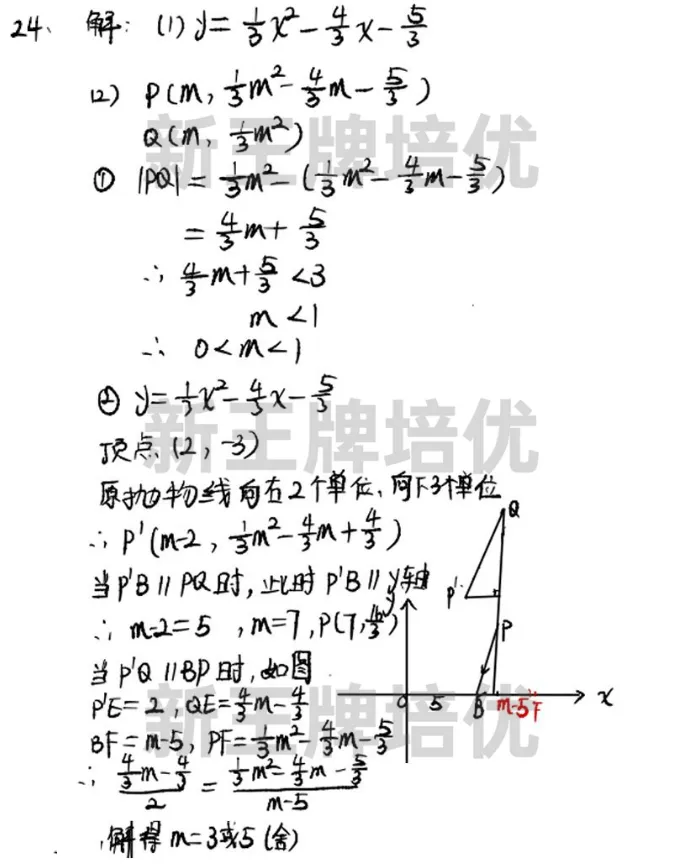 24、 解： (1) y = 1/3 x² - 4/3 x - 5/3
(2) P(m, 1/3 m² - 4/3 m - 5/3)
Q(m, 1/3 m²)
① |PQ| = 1/3 m² - (1/3 m² - 4/3 m - 5/3)
= 4/3 m + 5/3
∴ 4/3 m + 5/3 < 3
m < 1
∴ 0 < m < 1
② y = 1/3 x² - 4/3 x - 5/3
顶点 (2, -3)
原抛物线向右2个单位，向下3个单位
∴ P'(m-2, 1/3 m² - 4/3 m + 4/3)
当P'B∥PQ时，此时P'B∥y轴
∴ m-2=5 , m=7, P(7, 16/3)
当P'Q∥BP时，如图
P'E=2, QE= 4/3 m - 4/3
BF=m-5, PF= 1/3 m² - 4/3 m - 5/3
∴ (4/3 m - 4/3)/2 = (1/3 m² - 4/3 m - 5/3)/(m-5)
解得 m=3或5 (舍)
Q
P'
y
P
O 5 B m-5 F x
新王牌培优
新王牌培优
新王牌培优